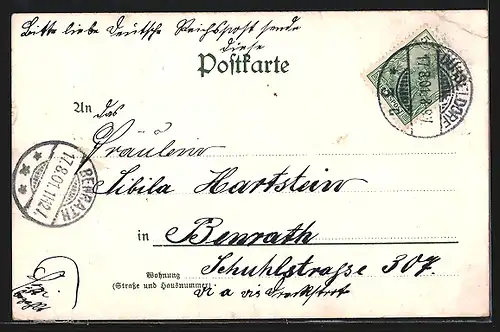 Bitte liebe Deutsche Reichspost sende
diese
Postkarte
An das
Fräulein
Sibila Hartstein
in Benrath
Wohnung
(Straße und Hausnummer)
Schuhlstrasse 307.
vis a vis
DÜSSELDORF
17.8.01.
BENRATH
17.8.01.11-12V.